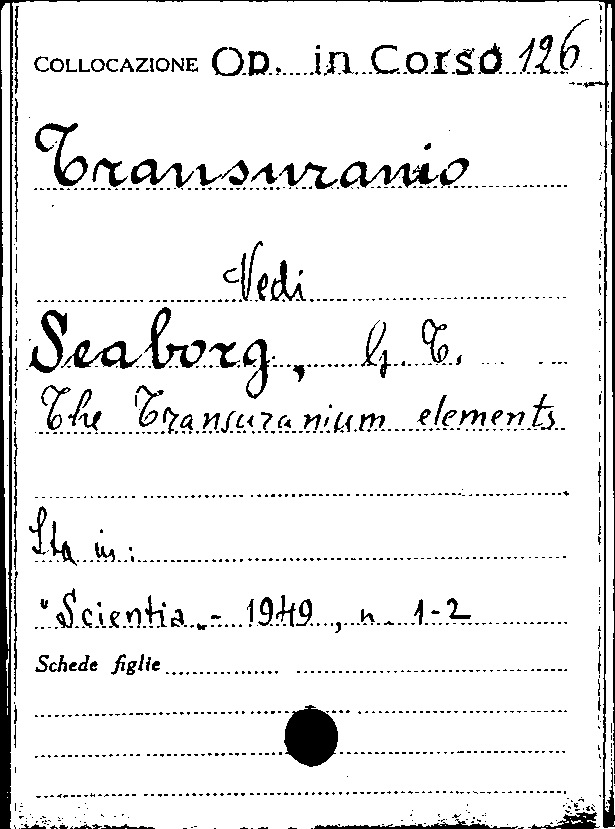 COLLOCAZIONE OD. in Corso 126
Transuranio
Vedi
Seaborg, G. T.
The Transuranium elements
Sta in:
"Scientia„- 1949, n. 1-2
Schede figlie